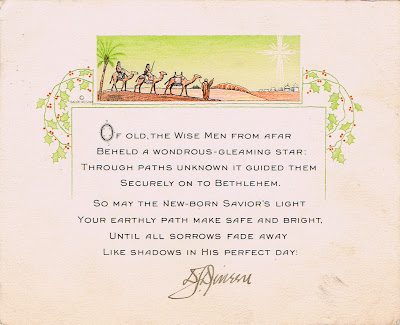 Of old, the Wise Men from afar
Beheld a wondrous-gleaming star:
Through paths unknown it guided them
Securely on to Bethlehem.
So may the New-born Savior's light
Your earthly path make safe and bright,
Until all sorrows fade away
Like shadows in His perfect day!